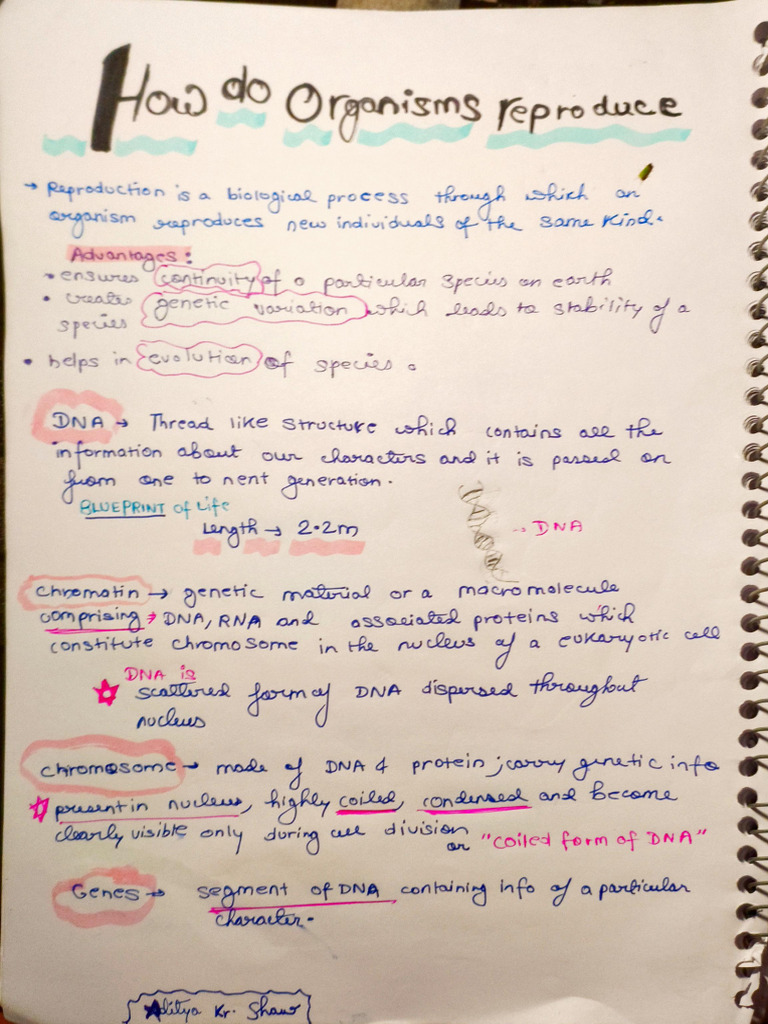 How do Organisms reproduce
→ Reproduction is a biological process through which an
organism reproduces new individuals of the same kind.
Advantages:
• ensures continuity of a particular species on earth
• creates genetic variation which leads to stability of a
species
• helps in evolution of species.
DNA → Thread like structure which contains all the
information about our characters and it is passed on
from one to nent generation.
BLUEPRINT of Life
Length → 2.2m
→ DNA
Chromatin → genetic material or a macromolecule
comprising → DNA, RNA and associated proteins which
constitute chromosome in the nucleus of a eukaryotic cell
DNA is
scattered form of DNA dispersed throughout
nucleus
Chromosome → made of DNA & protein ; carry genetic info
present in nucleus, highly coiled, condensed and become
clearly visible only during cell division
or "coiled form of DNA"
Genes → segment of DNA containing info of a particular
character.
Aditya Kr. Shaw